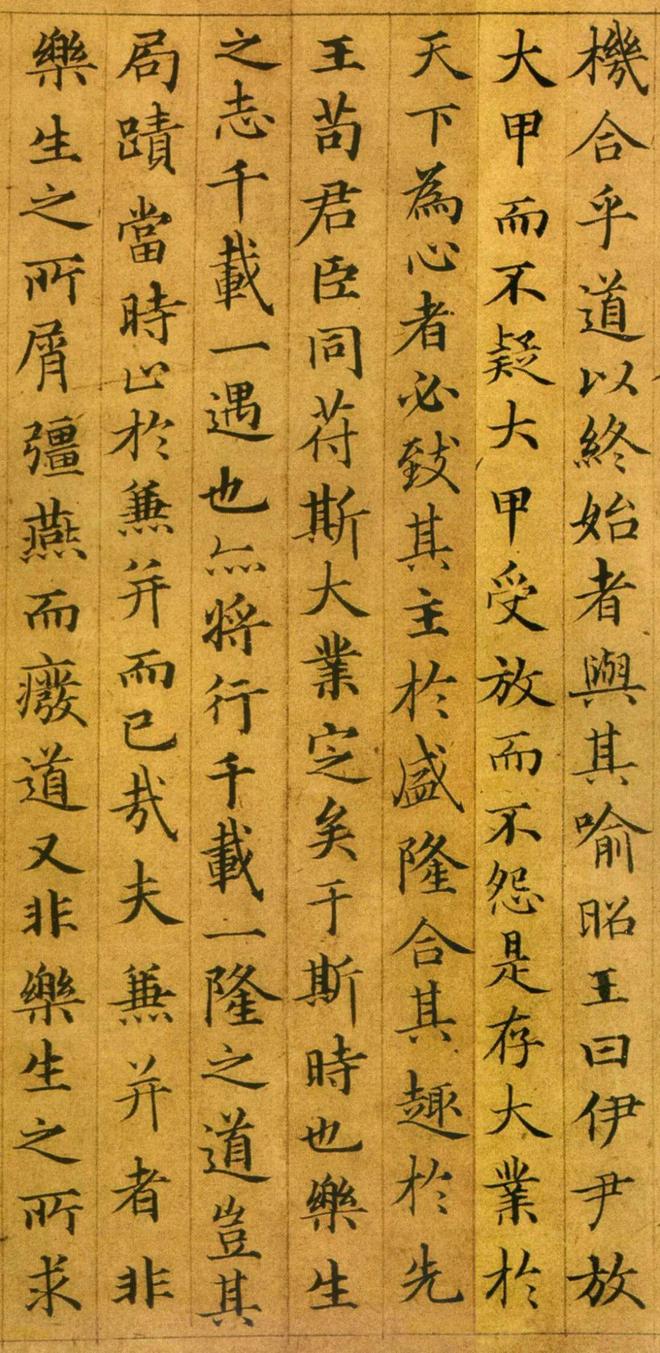 機合乎道以終始者與其喻昭王曰伊尹放
大甲而不疑大甲受放而不怨是存大業於
天下為心者必致其主於盛隆合其趣於先
王苟君臣同苻斯大業定矣于斯時也樂生
之志千載一遇也亦將行千載一隆之道豈其
局蹟當時止於兼并而已哉夫兼并者非
樂生之所屑彊燕而廢道又非樂生之所求